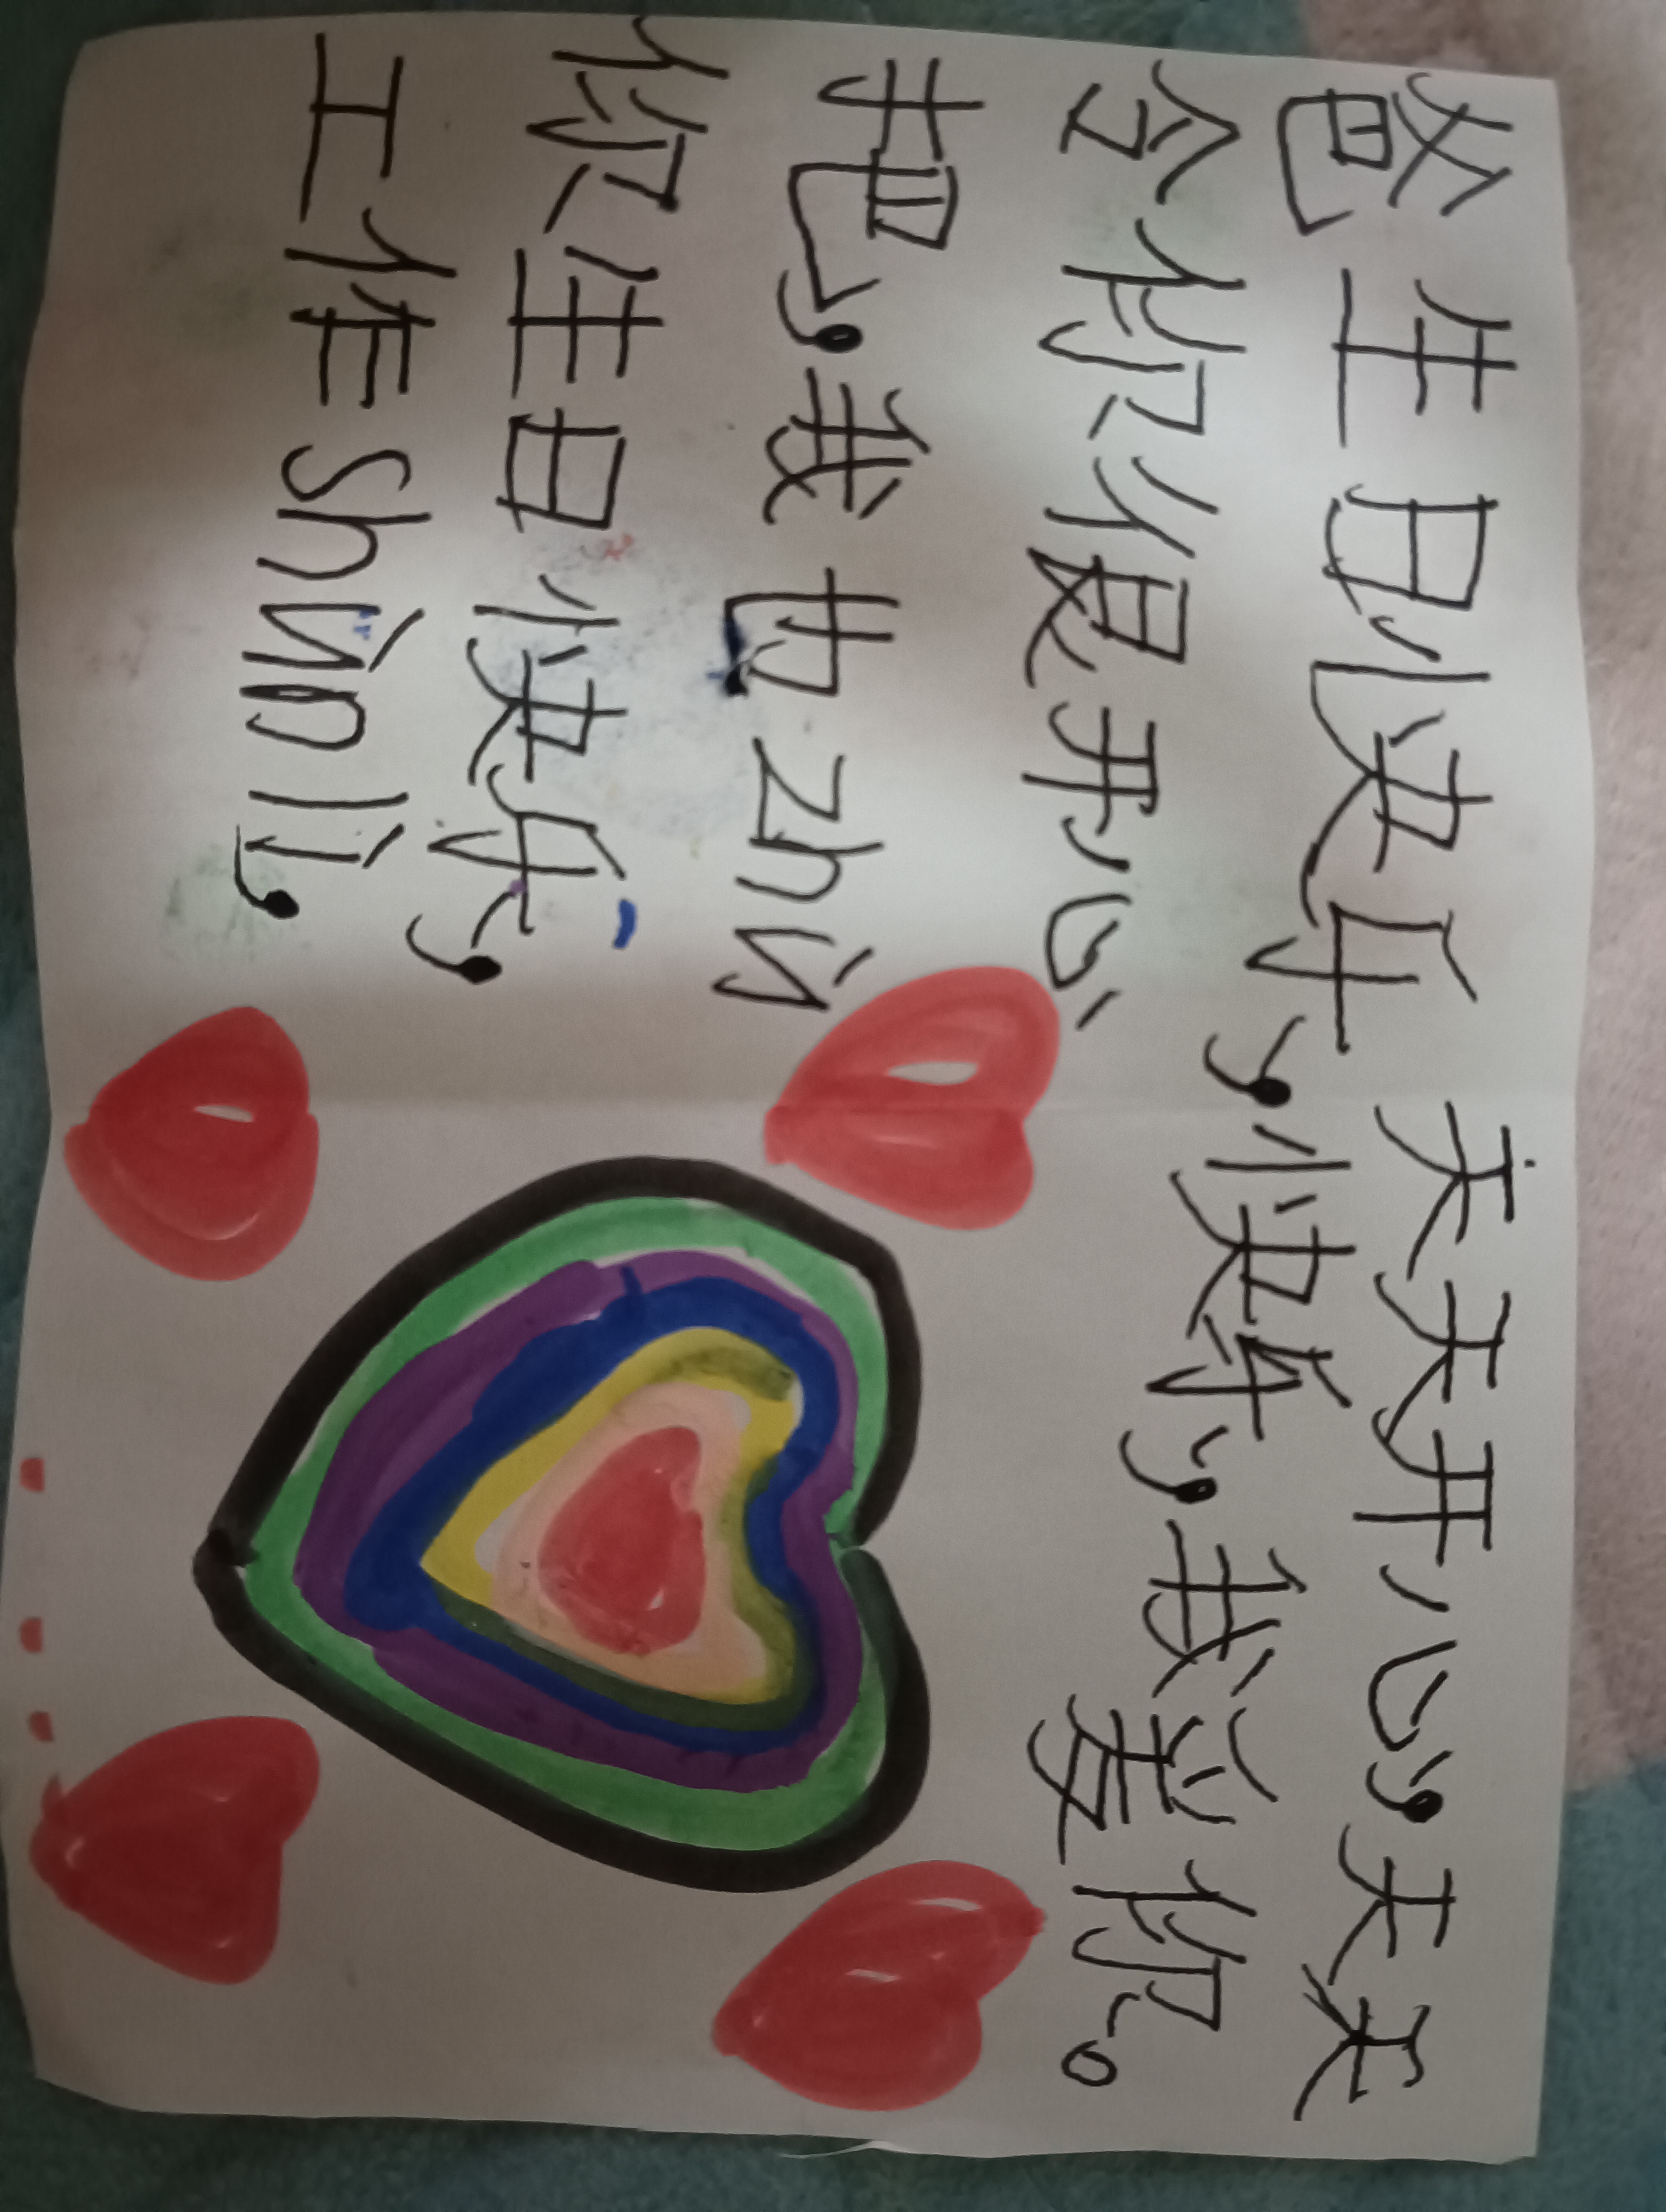 爸生日快乐,
今你很开心
把,我也zhù
你生日快乐,
工作shùnlì,
天天开心,天天
快乐,我爱你。